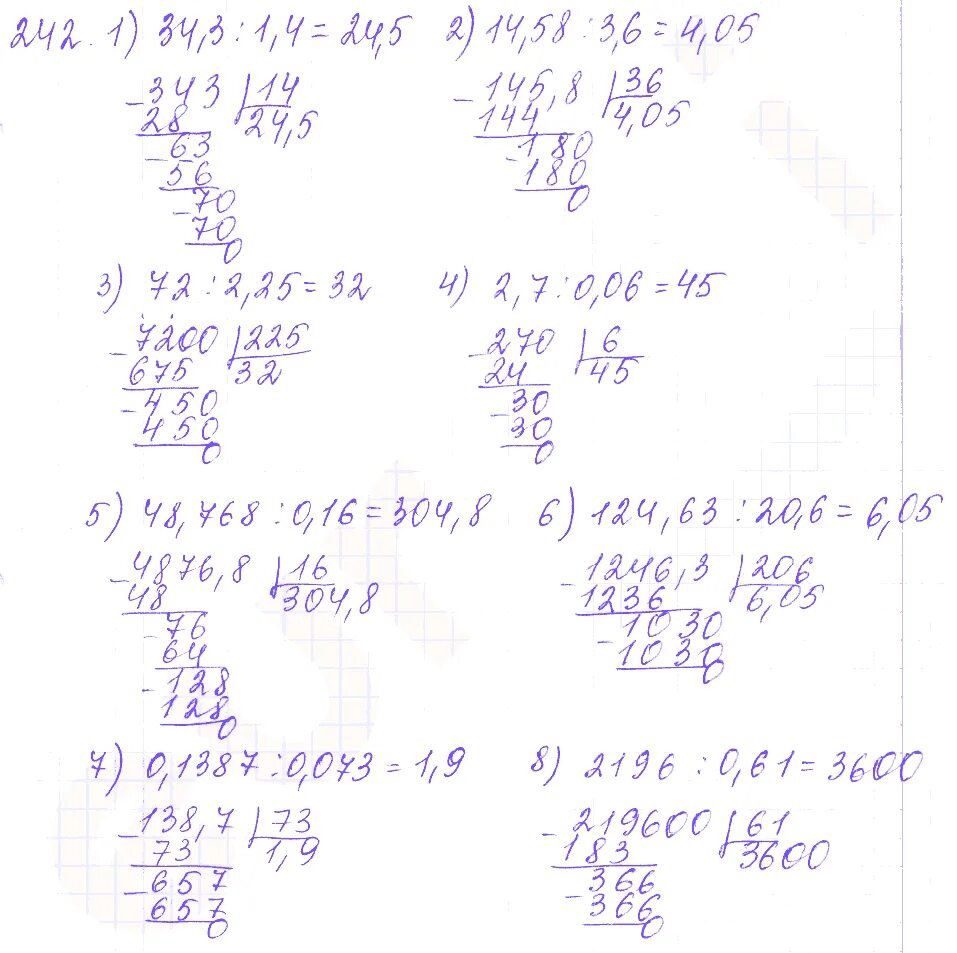 242. 1) 34,3 : 1,4 = 24,5 2) 14,58 : 3,6 = 4,05
-343 14 -145,8 36
28 24,5 144 4,05
-63 -180
56 180
-70 0
70
0
3) 72 : 2,25 = 32 4) 2,7 : 0,06 = 45
-7200 225 -270 6
675 32 24 45
-450 -30
450 30
0 0
5) 48,768 : 0,16 = 304,8 6) 124,63 : 20,6 = 6,05
-4876,8 16 -1246,3 206
48 304,8 1236 6,05
-76 -1030
64 1030
-128 0
128
0
7) 0,1387 : 0,073 = 1,9 8) 2196 : 0,61 = 3600
-138,7 73 -219600 61
73 1,9 183 3600
-657 -366
657 366
0 0